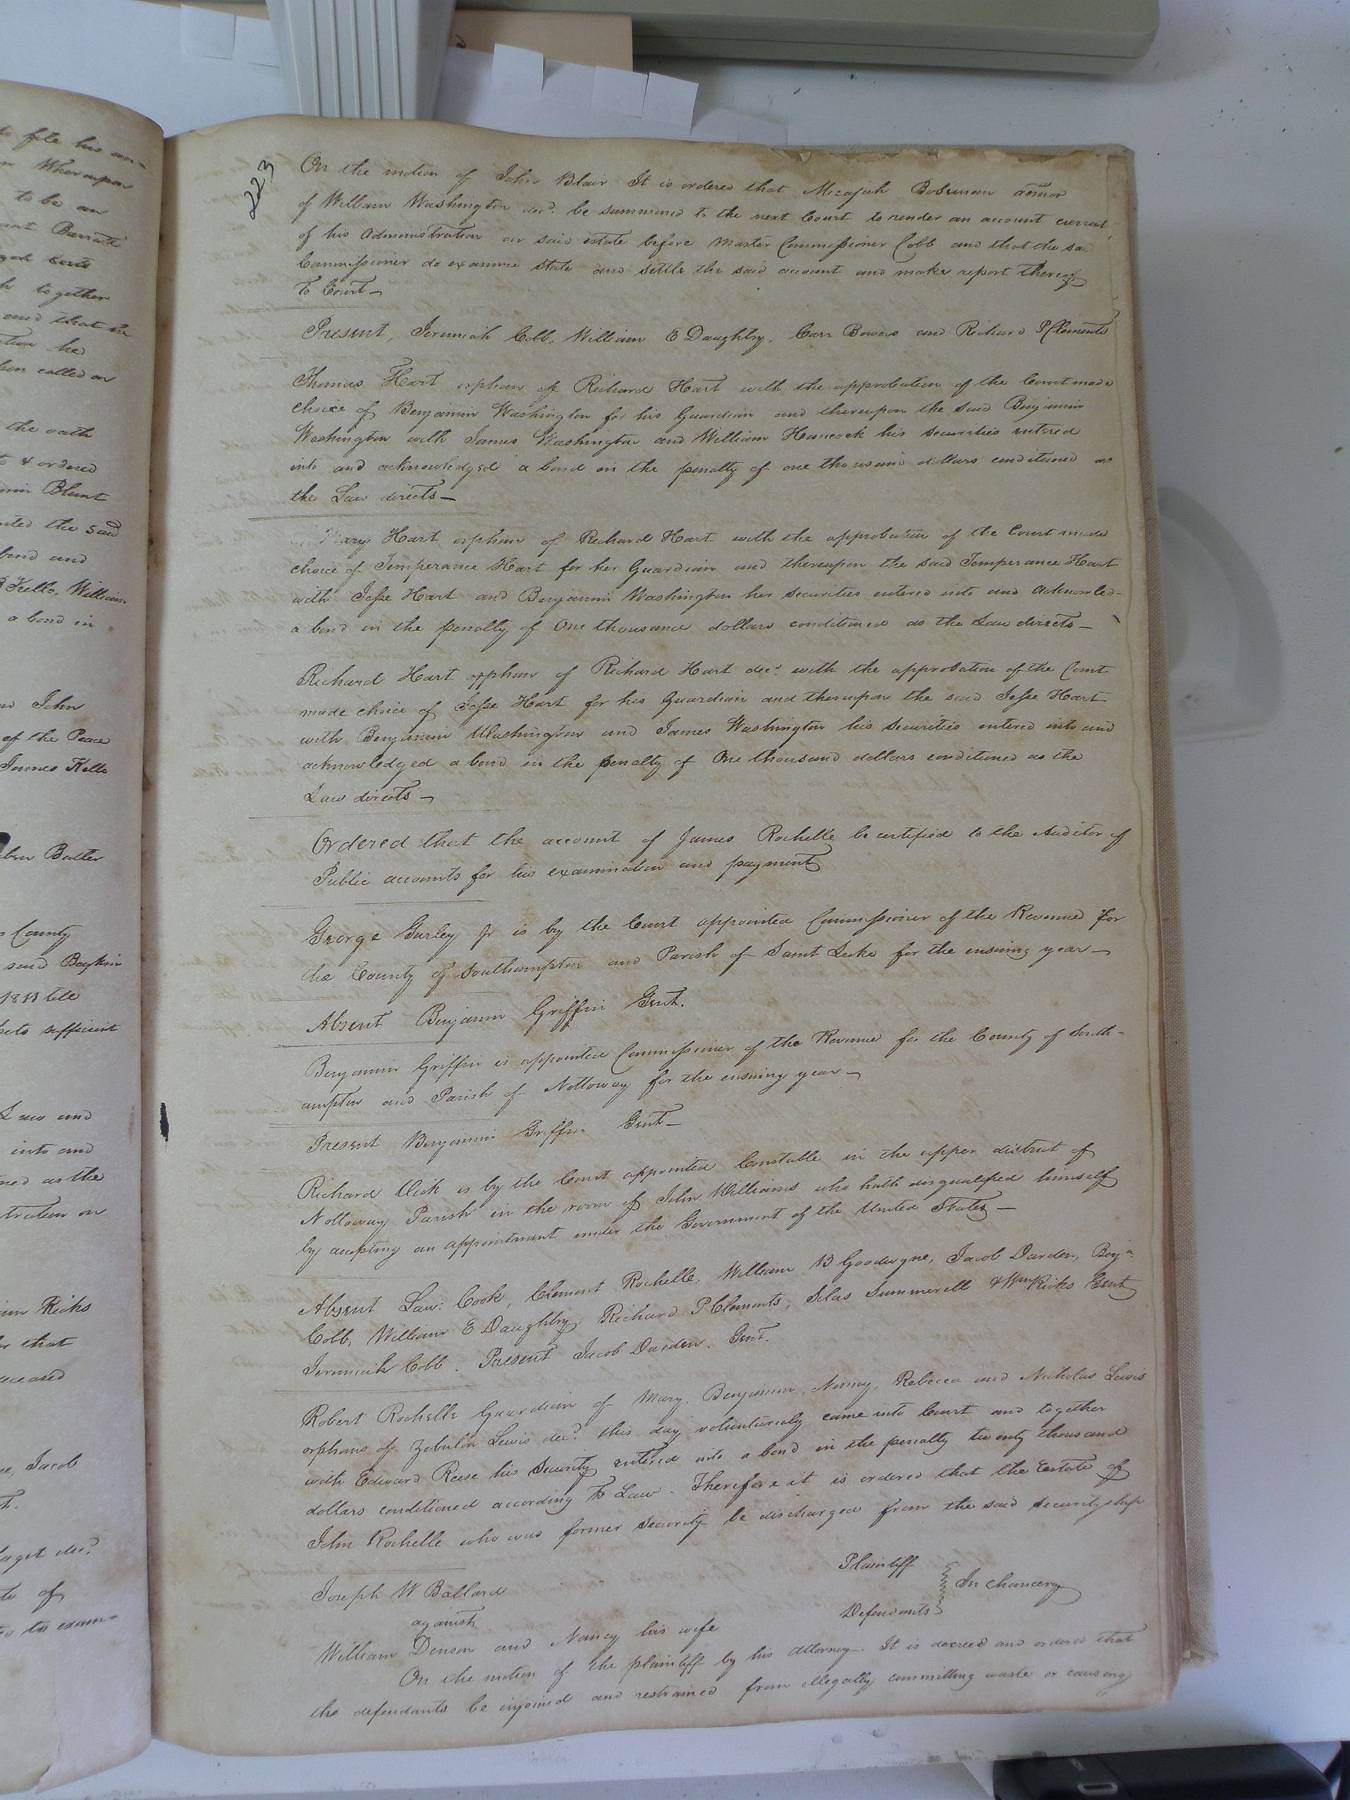 te file his an-
n Whereupon
to be an
nat Barratt
together
and that he
tion he
hen called on
the oath
to & ordered
min Blunt
nted the said
bond and
Kello, William
a bond in
John
of the Peace
James Kello
Butler
County
said Boykin
sufficient
Law and
into and
ned as the
tration on
Ricks
that
deceased
Jacob
decd
of
to exam-
223
On the motion of John Blair It is ordered that Micajah Boseman admor
of William Washington decd. be summoned to the next Court to render an account current
of his Administration on said estate before Master Commissioner Cobb and that the sd
Commissioner do examine state and settle the said account and make report thereof
To Court—
Present, Jeremiah Cobb, William E Daughtry, Carr Bowers and Richard P Clements
Thomas Hart orphan of Richard Hart with the approbation of the Court made
choice of Benjamin Washington for his Guardian and thereupon the said Benjamin
Washington with James Washington and William Hancock his Securities entered
into and acknowledged a bond in the penalty of one thousand dollars conditioned as
the Law directs—
Mary Hart orphan of Richard Hart with the approbation of the Court made
choice of Temperance Hart for her Guardian and thereupon the said Temperance Hart
with Jesse Hart and Benjamin Washington her Securities entered into and Acknowled-
a bond in the penalty of One thousand dollars conditioned as the Law directs—
Richard Hart orphan of Richard Hart decd. with the approbation of the Court
made choice of Jesse Hart for his Guardian and thereupon the said Jesse Hart
with Benjamin Washington and James Washington his Securities entered into and
acknowledged a bond in the penalty of One thousand dollars conditioned as the
Law directs—
Ordered that the account of James Rochelle be certified to the Auditor of
Public accounts for his examination and payment
George Gurley Jr is by the Court appointed Commissioner of the Revenue for
the County of Southampton and Parish of Saint Luke for the ensuing year—
Absent Benjamin Griffin Gent.
Benjamin Griffin is appointed Commissioner of the Revenue for the County of South-
ampton and Parish of Nottoway for the ensuing year—
Present Benjamin Griffin Gent—
Richard is by the Court appointed Constable in the upper district of
Nottoway Parish in the room of John Williams who hath disqualified himself
by accepting an appointment under the Government of the United States—
Absent Law: Cook, Clement Rochelle, William B Goodwyne, Jacob Darden, Benja
Cobb, William E Daughtry, Richard P Clements, Silas Summerell & Wm Ricks Gent
Jeremiah Cobb. Present Jacob Darden. Gent.
Robert Rochelle Guardian of Mary, Benjamin, Nanny, Rebecca and Nicholas Lewis
orphans of Zebulon Lewis decd. this day voluntarialy came into Court and together
with Edward Reese his Security entered into a bond in the penalty twenty thousand
dollars conditioned according To Law. Therefore it is ordered that the Estate of
John Rochelle who was former Security be discharged from the said securityship
Joseph W Ballard Plaintiff
against In chancery
William Denson and Nancy his wife Defendants
On the motion of the plaintiff by his attorney. It is decreed and ordered that
the defendants be enjoined and restrained from illegally committing waste or causing